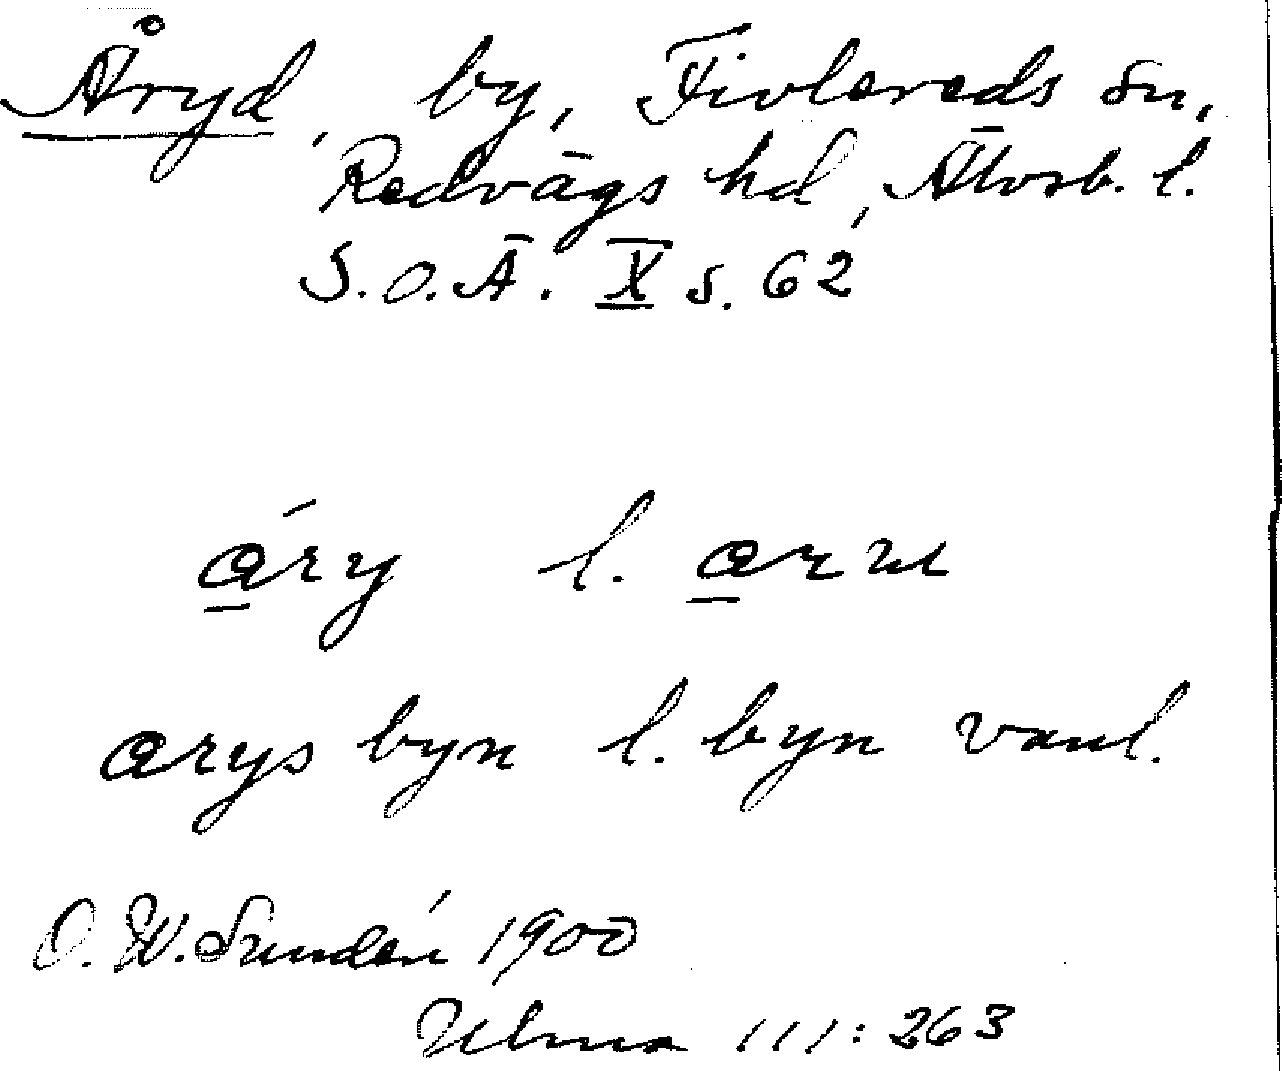 Åryd, by, Fivlereds sn,
Redvägs hd, Älvsb. l.
S.O.Ä. X s. 62
áry l.
arys byn l. byn vanl.
O. W. Sundén 1900
Ulma 111:263